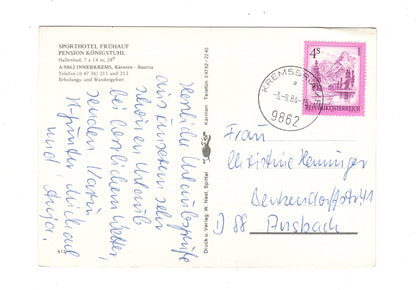 SPORTHOTEL FRÜHAUF
PENSION KÖNIGSTUHL
Hallenbad, 7 x 14 m, 28°
A-9862 INNERKREMS, Kärnten - Austria
Telefon (0 47 36) 211 und 212
Erholungs- und Wandergebiet
Herzliche Urlaubsgrüße
aus unserem sehr
schönen Urlaub
bei herrlichem Wetter,
senden Karin
Günter, Michael
und Anja.
Druck u. Verlag: W. Nest, Spittal
Kärnten
Telefon 04762 / 22 45
KREMSBRÜCKE
a
-3.-9.84-
9862
4S
REPUBLIK ÖSTERREICH
Frau
Christine Henninger
Beckendorffstr. 41
D 88 Ansbach